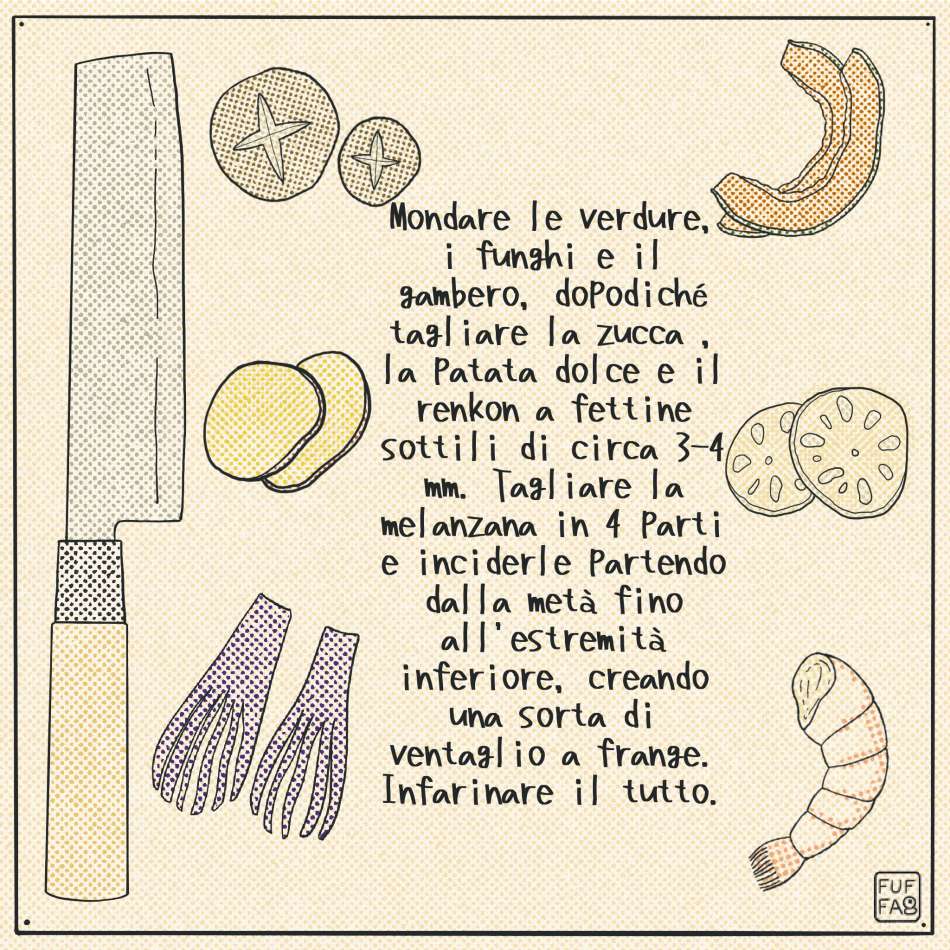 Mondare le verdure,
i funghi e il
gambero, dopodiché
tagliare la zucca ,
la patata dolce e il
renkon a fettine
sottili di circa 3-4
mm. Tagliare la
melanzana in 4 parti
e inciderle partendo
dalla metà fino
all'estremità
inferiore, creando
una sorta di
ventaglio a frange.
Infarinare il tutto.
FUF
FAg